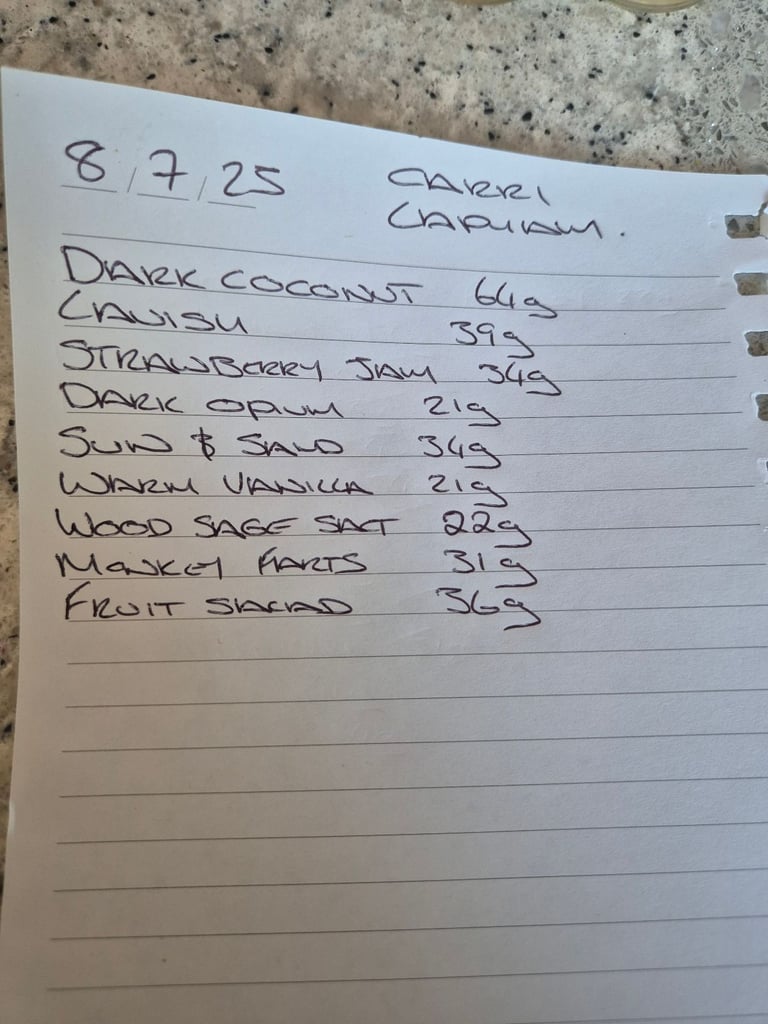 8/7/25 CARRI
DARK COCONUT 64g
LAVISH 39g
STRAWBERRY JAM 34g
DARK OPIUM 21g
SUN & SAND 34g
WARM VANILLA 21g
WOOD SAGE SALT 22g
MONKEY FARTS 31g
FRUIT SALAD 36g